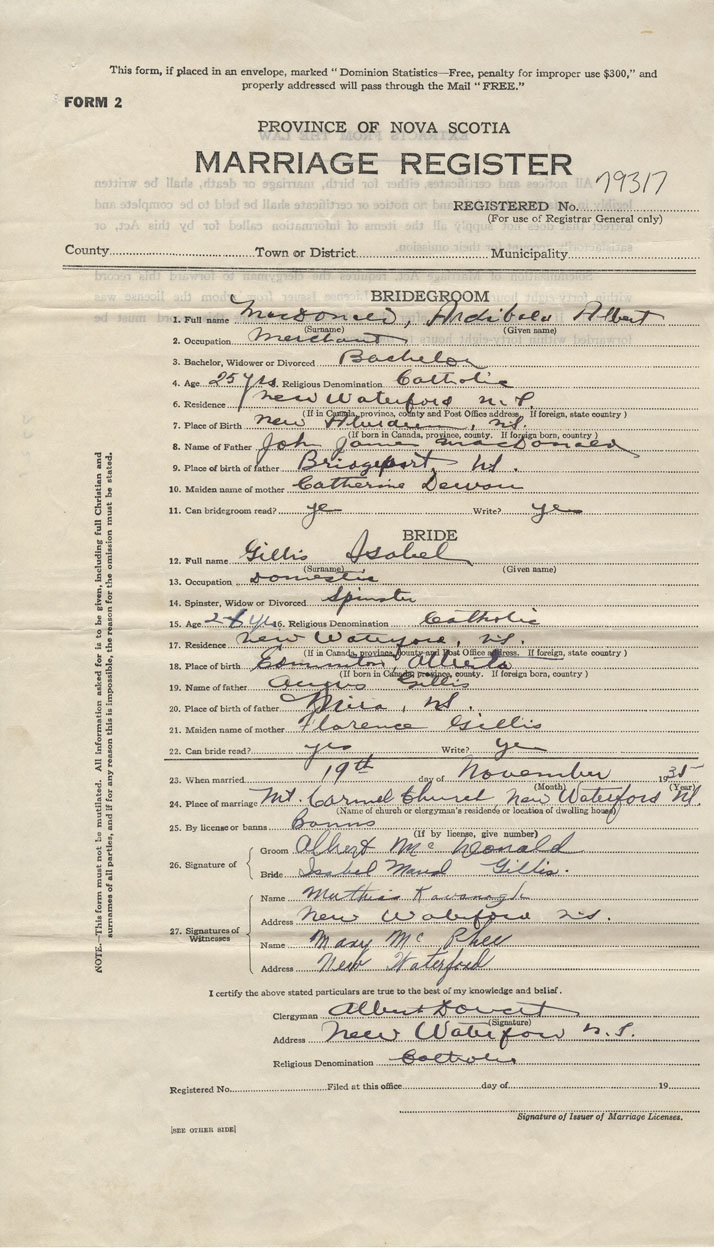 This form, if placed in an envelope, marked "Dominion Statistics—Free, penalty for improper use $300," and
properly addressed will pass through the Mail "FREE."
FORM 2
PROVINCE OF NOVA SCOTIA
MARRIAGE REGISTER
REGISTERED No. 79317
(For use of Registrar General only)
County Town or District Municipality
BRIDEGROOM
1. Full name MacDonald, Archibald Albert
(Surname) (Given name)
2. Occupation Merchant
3. Bachelor, Widower or Divorced Bachelor
4. Age 25 yrs. Religious Denomination Catholic
6. Residence New Waterford N.S.
(If in Canada, province, county and Post Office address. If foreign, state country)
7. Place of Birth New Aberdeen, N.S.
(If born in Canada, province, county. If foreign born, country)
8. Name of Father John James MacDonald
9. Place of birth of father Bridgeport, N.S.
10. Maiden name of mother Catherine
11. Can bridegroom read? yes Write? yes
BRIDE
12. Full name Gillis Isabel
(Surname) (Given name)
13. Occupation Domestic
14. Spinster, Widow or Divorced Spinster
15. Age yrs 16. Religious Denomination Catholic
17. Residence New Waterford, N.S.
(If in Canada, province, county and Post Office address. If foreign, state country)
18. Place of birth Edmonton, Alberta
(If born in Canada, province, county. If foreign born, country)
19. Name of father Angus Gillis
20. Place of birth of father Mira, N.S.
21. Maiden name of mother Florence Gillis
22. Can bride read? yes Write? yes
23. When married 19th day of November 1935
(Month) (Year)
24. Place of marriage Mt. Carmel Church New Waterford N.S.
(Name of church or clergyman's residence or location of dwelling house)
25. By license or banns Banns
(If by license, give number)
26. Signature of
Groom Albert McDonald
Bride Isabel Maud Gillis.
27. Signatures of Witnesses
Name Mathias Kavanagh
Address New Waterford N.S.
Name Mary McPhee
Address New Waterford
I certify the above stated particulars are true to the best of my knowledge and belief.
Clergyman Albert Doucet
(Signature)
Address New Waterford N.S.
Religious Denomination Catholic
Registered No. Filed at this office day of 19
Signature of Issuer of Marriage Licenses.
[SEE OTHER SIDE]
NOTE.—This form must not be mutilated. All information asked for is to be given, including full Christian and
surnames of all parties, and if for any reason this is impossible, the reason for the omission must be stated.